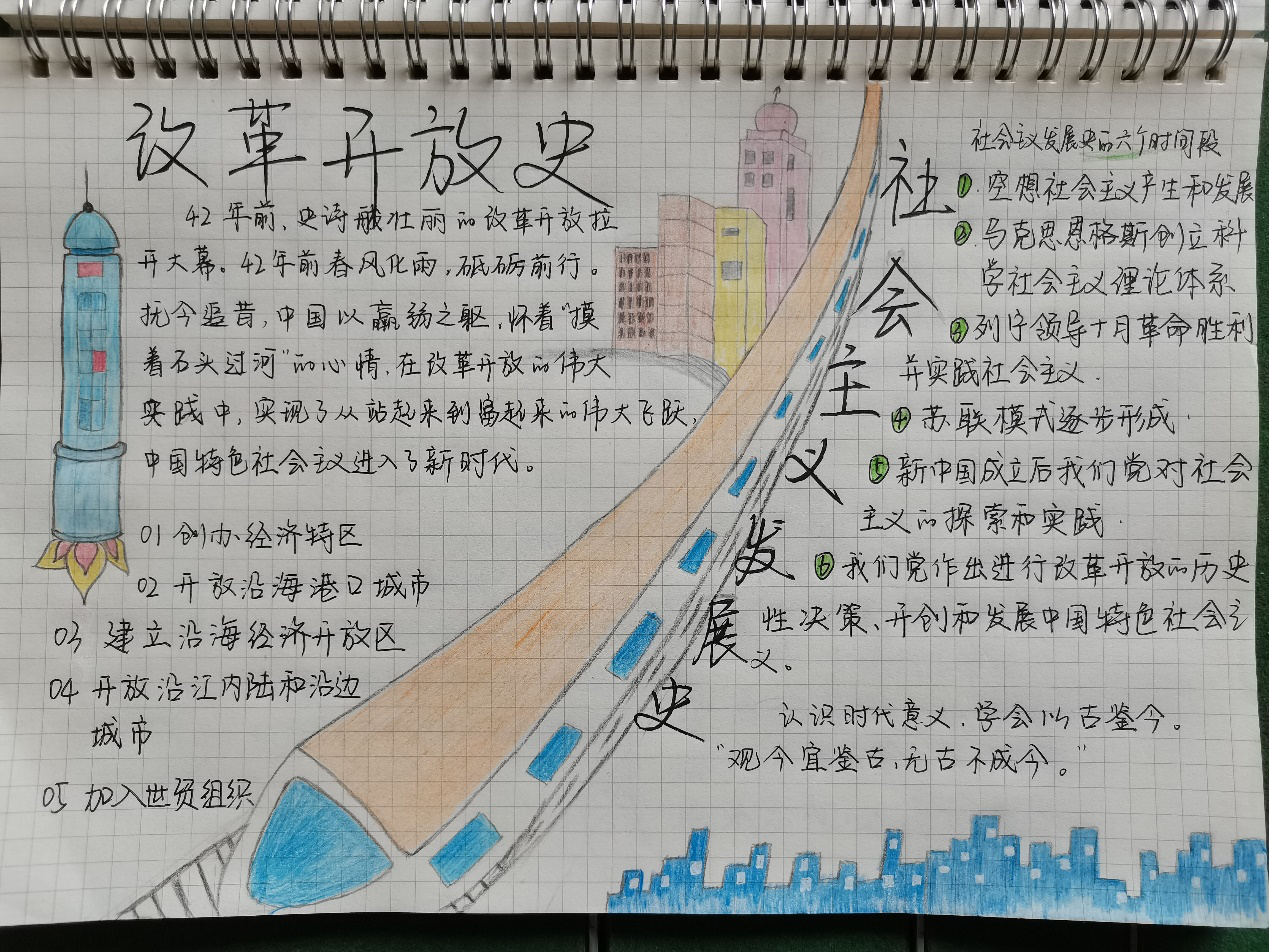 改革开放史
42年前、史诗般壮丽的改革开放拉
开大幕。42年前春风化雨,砥砺前行。
抚今追昔,中国以羸弱之躯,怀着“摸
着石头过河”的心情,在改革开放的伟大
实践中,实现了从站起来到富起来的伟大飞跃,
中国特色社会主义进入了新时代。
01 创办经济特区
02 开放沿海港口城市
03 建立沿海经济开放区
04 开放沿江内陆和沿边
城市
05 加入世贸组织
社会主义发展史
社会主义发展史的六个时间段
1.空想社会主义产生和发展
2.马克思恩格斯创立科
学社会主义理论体系
3列宁领导十月革命胜利
并实践社会主义.
4 苏联模式逐步形成.
5 新中国成立后我们党对社会
主义的探索和实践.
6 我们党作出进行改革开放的历史
性决策、开创和发展中国特色社会主
义。
认识时代意义.学会以古鉴今。
“观今宜鉴古,无古不成今。”